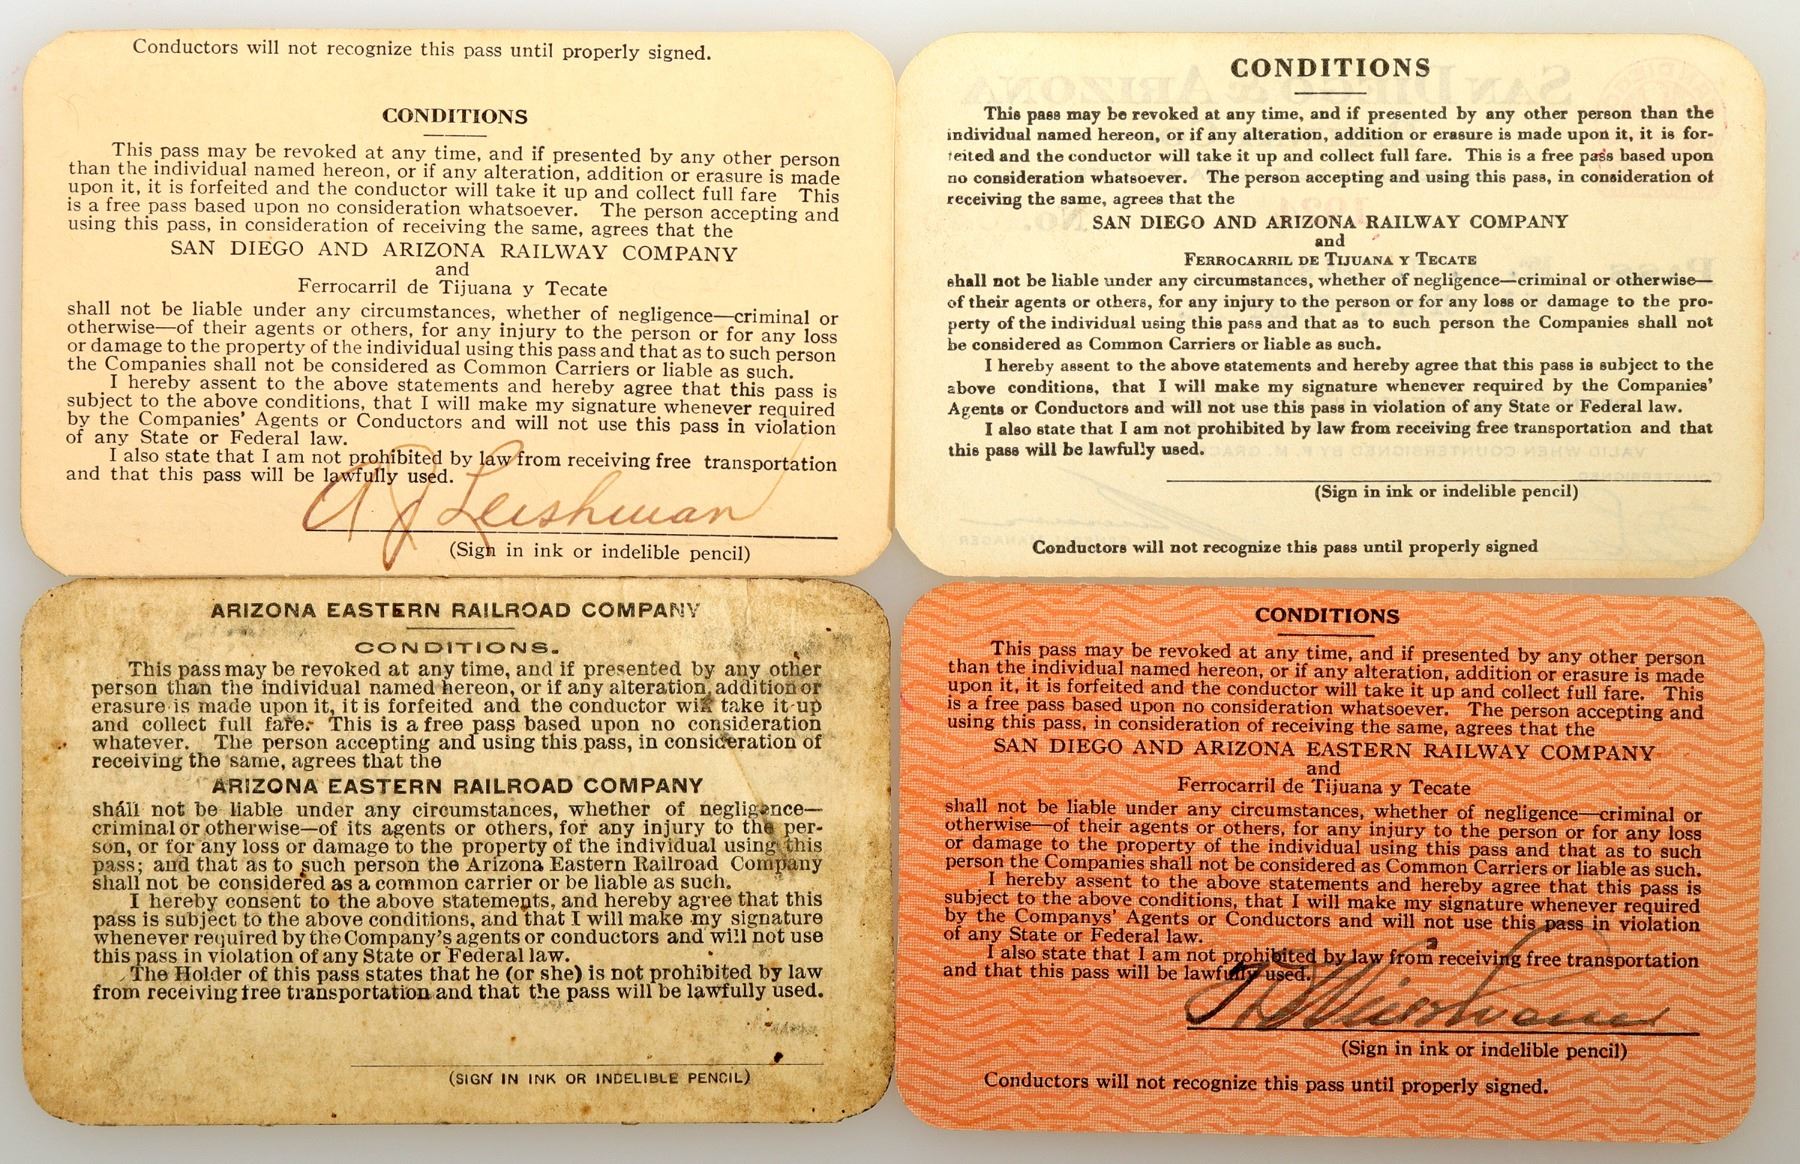 Conductors will not recognize this pass until properly signed.
CONDITIONS
This pass may be revoked at any time, and if presented by any other person
than the individual named hereon, or if any alteration, addition or erasure is made
upon it, it is forfeited and the conductor will take it up and collect full fare This
is a free pass based upon no consideration whatsoever. The person accepting and
using this pass, in consideration of receiving the same, agrees that the
SAN DIEGO AND ARIZONA RAILWAY COMPANY
and
Ferrocarril de Tijuana y Tecate
shall not be liable under any circumstances, whether of negligence—criminal or
otherwise—of their agents or others, for any injury to the person or for any loss
or damage to the property of the individual using this pass and that as to such person
the Companies shall not be considered as Common Carriers or liable as such.
I hereby assent to the above statements and hereby agree that this pass is
subject to the above conditions, that I will make my signature whenever required
by the Companies' Agents or Conductors and will not use this pass in violation
of any State or Federal law.
I also state that I am not prohibited by law from receiving free transportation
and that this pass will be lawfully used.
A J Leishman
(Sign in ink or indelible pencil)
CONDITIONS
This pass may be revoked at any time, and if presented by any other person than the
individual named hereon, or if any alteration, addition or erasure is made upon it, it is for-
feited and the conductor will take it up and collect full fare. This is a free pass based upon
no consideration whatsoever. The person accepting and using this pass, in consideration of
receiving the same, agrees that the
SAN DIEGO AND ARIZONA RAILWAY COMPANY
and
FERROCARRIL DE TIJUANA Y TECATE
shall not be liable under any circumstances, whether of negligence—criminal or otherwise—
of their agents or others, for any injury to the person or for any loss or damage to the pro-
perty of the individual using this pass and that as to such person the Companies shall not
be considered as Common Carriers or liable as such.
I hereby assent to the above statements and hereby agree that this pass is subject to the
above conditions, that I will make my signature whenever required by the Companies'
Agents or Conductors and will not use this pass in violation of any State or Federal law.
I also state that I am not prohibited by law from receiving free transportation and that
this pass will be lawfully used.
(Sign in ink or indelible pencil)
Conductors will not recognize this pass until properly signed
ARIZONA EASTERN RAILROAD COMPANY
CONDITIONS.
This pass may be revoked at any time, and if presented by any other
person than the individual named hereon, or if any alteration, addition or
erasure is made upon it, it is forfeited and the conductor will take it up
and collect full fare. This is a free pass based upon no consideration
whatever. The person accepting and using this pass, in consideration of
receiving the same, agrees that the
ARIZONA EASTERN RAILROAD COMPANY
shall not be liable under any circumstances, whether of negligence—
criminal or otherwise—of its agents or others, for any injury to the per-
son, or for any loss or damage to the property of the individual using this
pass; and that as to such person the Arizona Eastern Railroad Company
shall not be considered as a common carrier or be liable as such.
I hereby consent to the above statements, and hereby agree that this
pass is subject to the above conditions, and that I will make my signature
whenever required by the Company's agents or conductors and will not use
this pass in violation of any State or Federal law.
The Holder of this pass states that he (or she) is not prohibited by law
from receiving free transportation and that the pass will be lawfully used.
(SIGN IN INK OR INDELIBLE PENCIL)
CONDITIONS
This pass may be revoked at any time, and if presented by any other person
than the individual named hereon, or if any alteration, addition or erasure is made
upon it, it is forfeited and the conductor will take it up and collect full fare. This
is a free pass based upon no consideration whatsoever. The person accepting and
using this pass, in consideration of receiving the same, agrees that the
SAN DIEGO AND ARIZONA EASTERN RAILWAY COMPANY
and
Ferrocarril de Tijuana y Tecate
shall not be liable under any circumstances, whether of negligence—criminal or
otherwise—of their agents or others, for any injury to the person or for any loss
or damage to the property of the individual using this pass and that as to such
person the Companies shall not be considered as Common Carriers or liable as such.
I hereby assent to the above statements and hereby agree that this pass is
subject to the above conditions, that I will make my signature whenever required
by the Companys' Agents or Conductors and will not use this pass in violation
of any State or Federal law.
I also state that I am not prohibited by law from receiving free transportation
and that this pass will be lawfully used.
(Sign in ink or indelible pencil)
Conductors will not recognize this pass until properly signed.